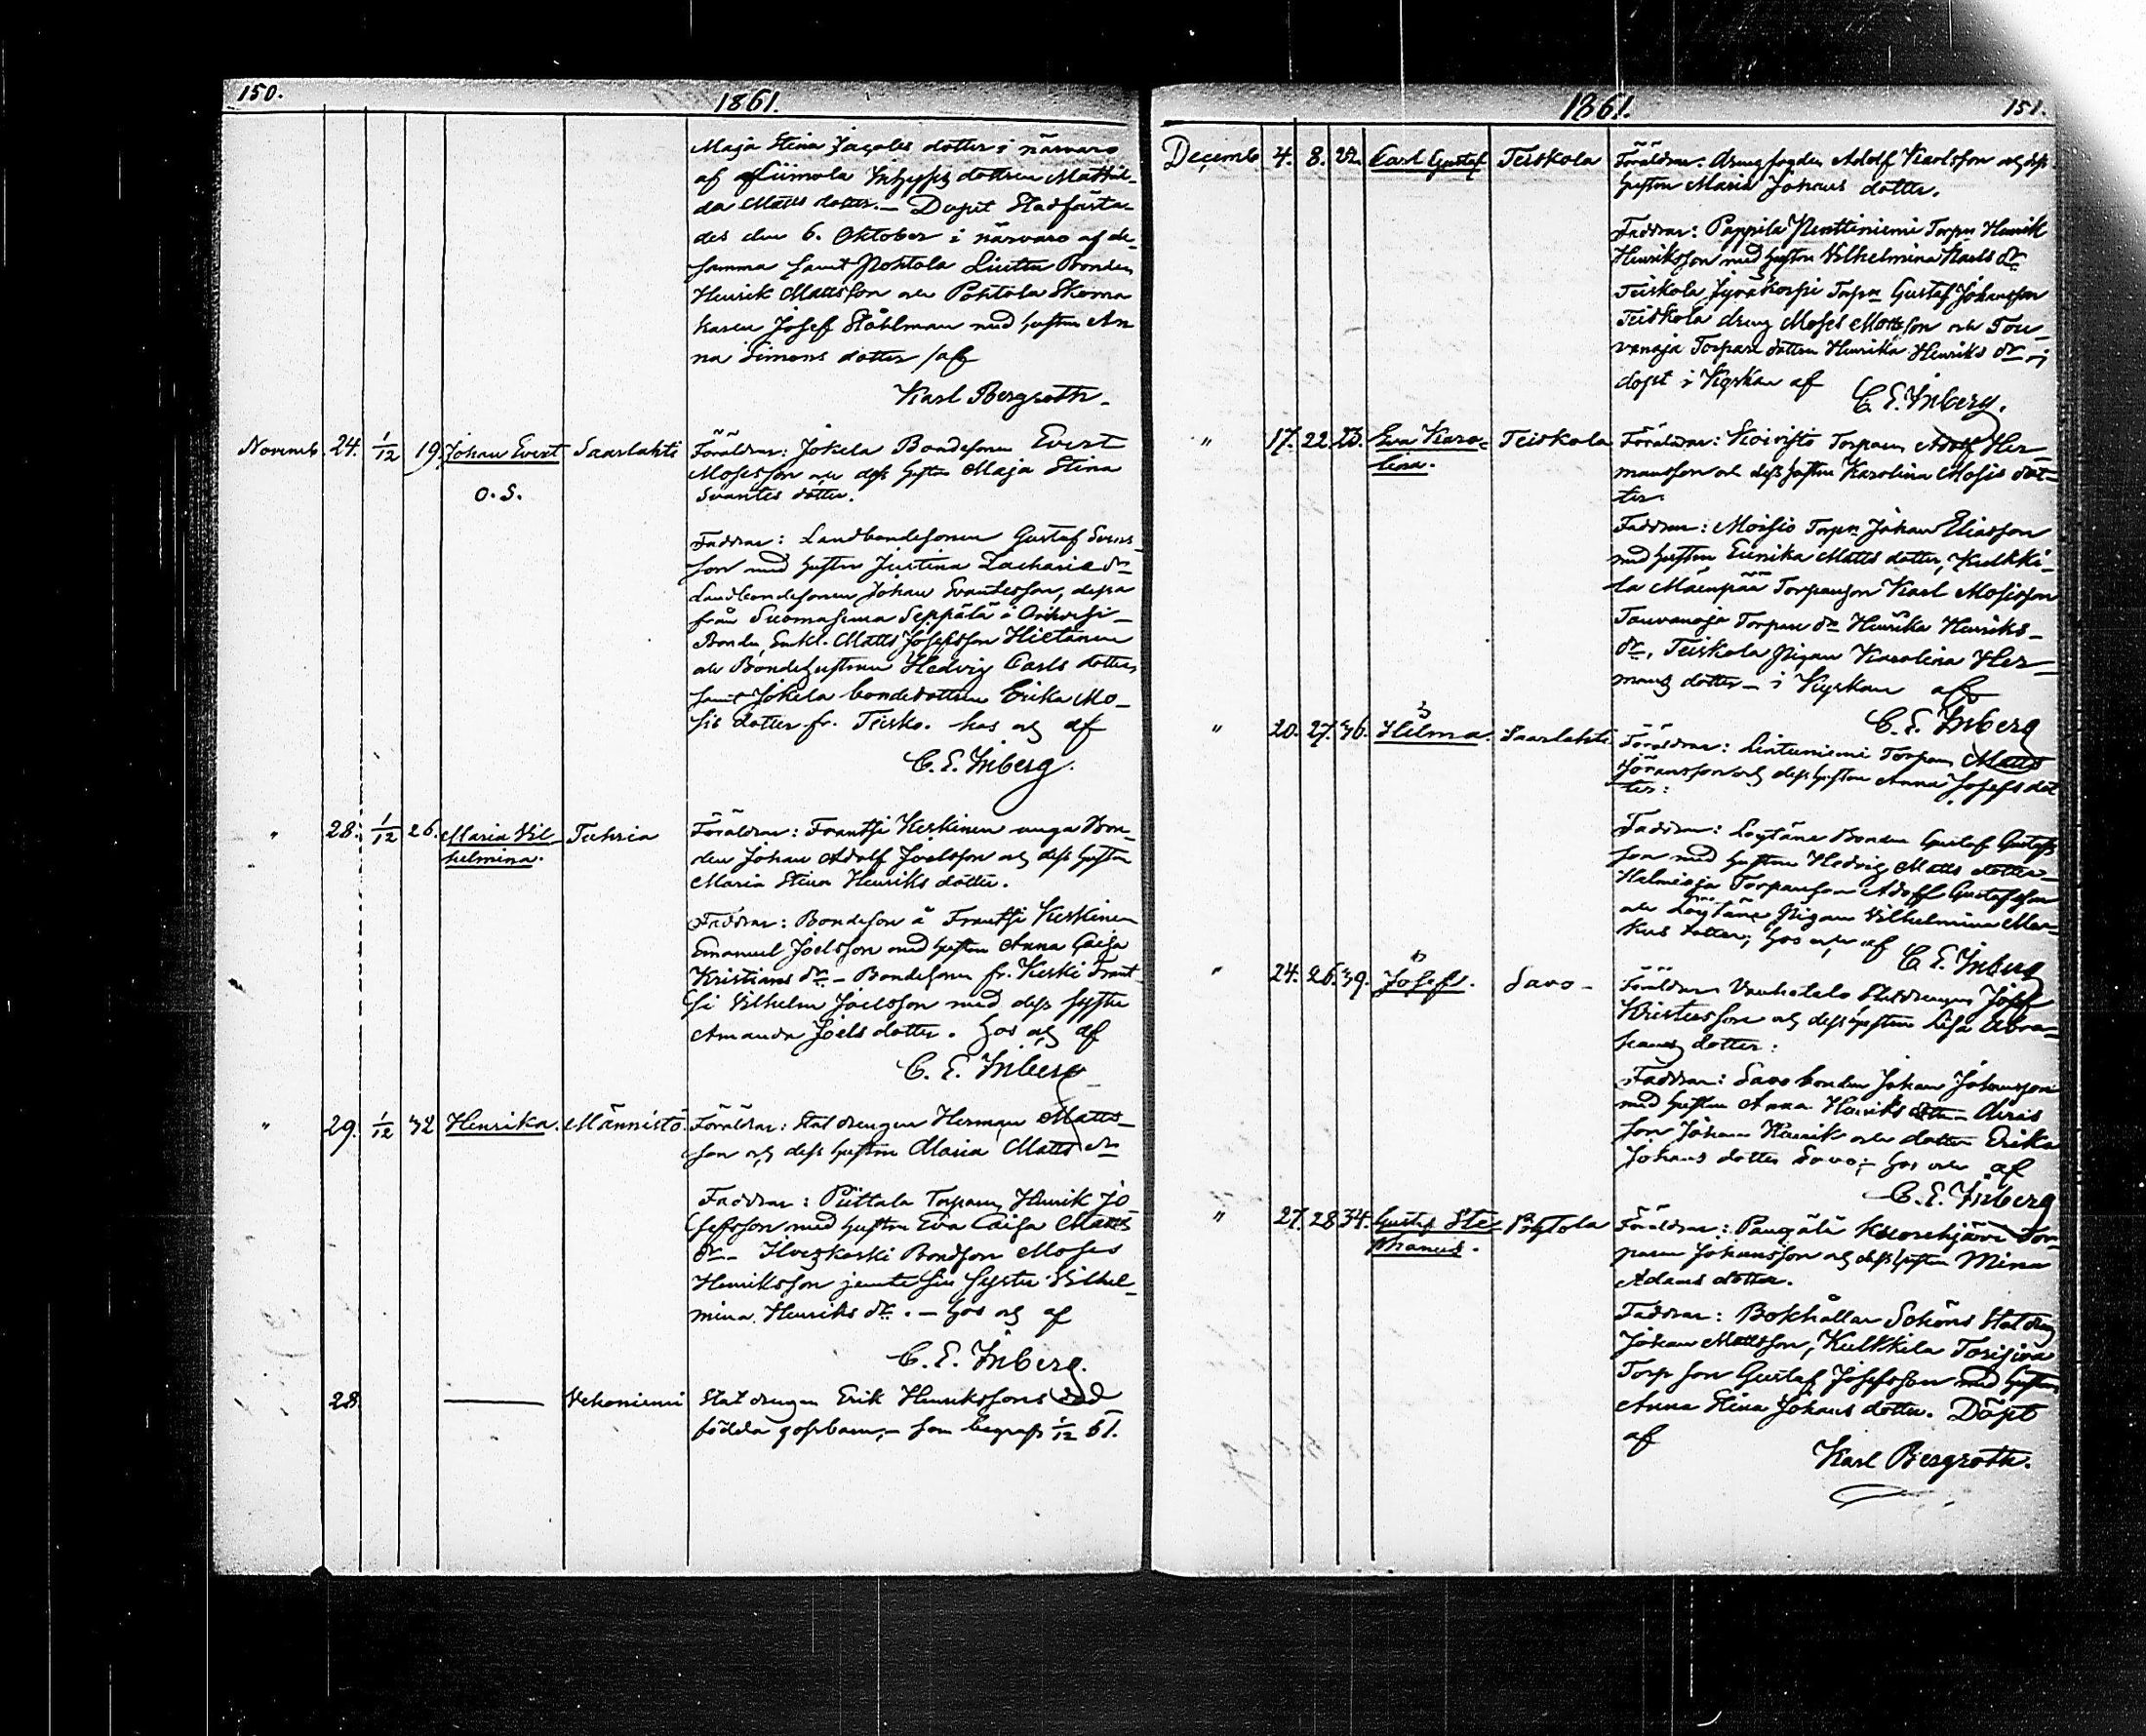 150.
1861.
Maja Stina Jacobs dotter i närvaro
af dottren Mathil-
da Matts dotter. – Dopet Stadfästa-
des den 6. Oktober i närvaro af de-
samma samt Pohtola Liutta Bonden
Henrik Mattsson och Pohtola Skoma
karen Josef Ståhlman med hustru An
na Simons dotter /af
Karl Bergroth.
Novemb. 24. 1/12 19. Johan Evert Saarlahti Föräldrar: Jokela Bondesonen Evert
Mosesson och dess hustru Maja Stina
O. S.
Svantes dotter.
Faddrar: Landbondesonen Gustaf Svens-
son med hustru Justina Zacharie dr
Landbondesonen Johan Svantesson, dessa
från Seppälä i Orihvesi –
Bonden Enkl. Matts Josefsson Hietanen
och Bondehustrun Hedvig Carls dotter,
samt Jokela bondedottren Erika Mo-
sis dotter fr. Teisko. hos och af
C. E. Inberg.
" 28. 1/12 26. Maria Vil- Tuhria Föräldrar: Frantsi Keskinen unga Bon-
helmina.
den Johan Adolf Joelsson och dess hustru
Maria Stina Henriks dotter.
Faddrar: Bondeson å Frantsi Keskinen
Emanuel Joelsson med hustru Anna Caisa
Kristians dr. – Bondesonen fr. Keski Frant
si Vilhelm Joelsson med dess syster
Amanda Joels dotter. hos och af
C. E. Inberg
" 29. 1/12 32 Henrika. Männistö. Föräldrar: Statdrengen Herman Matts-
son och dess hustru Maria Matts dr
Faddrar: Püttala Torparen Henrik Jo-
sefsson med hustru Eva Caisa Matts
dr – Ilvezkoski Bondson Moses
Henriksson jemte sin syster Vilhel-
mina Henriks dr. – hos och af
C. E. Inberg.
28. ——— Vehoniemi Statdrengen Erik Henrikssons död
födda gossbarn, – som begrafs 1/12 61.
1861.
151.
Decemb. 4. 8. 22. Carl Gustaf Teiskola Föräldrar. Drengfogden Adolf Karlsson och dess
hustru Maria Johans dotter.
Faddrar: Pappila Penttiniemi Torpn Henrik
Henriksson med hustru Vilhelmina Karls dr
Teiskola Jyräkorpi Torpn Gustaf Johansson
Teiskola dreng Moses Mattsson och Tou-
vanoja Torpare dottren Henrika Henriks dr –;
döpt i Kyrkan af
C. E. Inberg.
" 17. 22. 23. Eva Karo- Teiskola Föräldrar: Koivisto Torparen Adolf Her-
lina.
mansson och dess hustru Karolina Mosis dot-
ter.
Faddrar: Moisio Torpn Johan Eliasson
med hustru Eenika Matts dotter, Kulkki-
la Mäenpää Torpareson Karl Mosisson
Touvanoja Torpare dr Henrika Henriks-
dr, Teiskola Pigan Karolina Her-
mans dotter – i Kyrkan af
C. E. Inberg
" 20. 27. 36. Hilma. Saarlahti Föräldrar: Lintuniemi Torparen Matts
Göransson och dess hustru Anna Josefs dot
ter:
Faddrar: Löytäne Bonden Gustaf Gustafs
son med hustru Hedvig Matts dotter –
Torpareson Adolf Gustafsson
och Löytäne Pigan Vilhelmina Mar-
kus dotter; hos och af
C. E. Inberg
" 24. 26. 39. Josefs. Savo – Föräldrar Statdrengen Josef
Kristersson och dess hustru Lisa Abra-
hams dotter:
Faddrar: Savo bonden Johan Johansson
med hustru Anna Henriks dotter
son Johan Henrik och dotter Erika
Johans dotter Savo; – hos och af
C. E. Inberg
" 27. 28. 34. Gustaf Ste- Pohtola Föräldrar: Kuorehjärvi Tor-
phanus.
paren Johansson och dess hustru Mina
Adams dotter.
Faddrar: Bokhållar Schöns Statdreng
Johan Mattsson, Kulkkila
Torp son Gustaf Josefsson med hustru
Anna Stina Johans dotter. Döpt
af
Karl Bergroth.